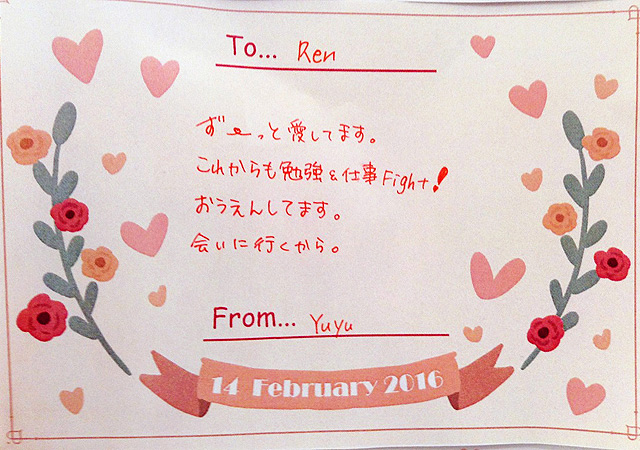 To... Ren
ず〜っと愛してます。
これからも勉強&仕事Fight!
おうえんしてます。
会いに行くから。
From... Yuyu
14 February 2016